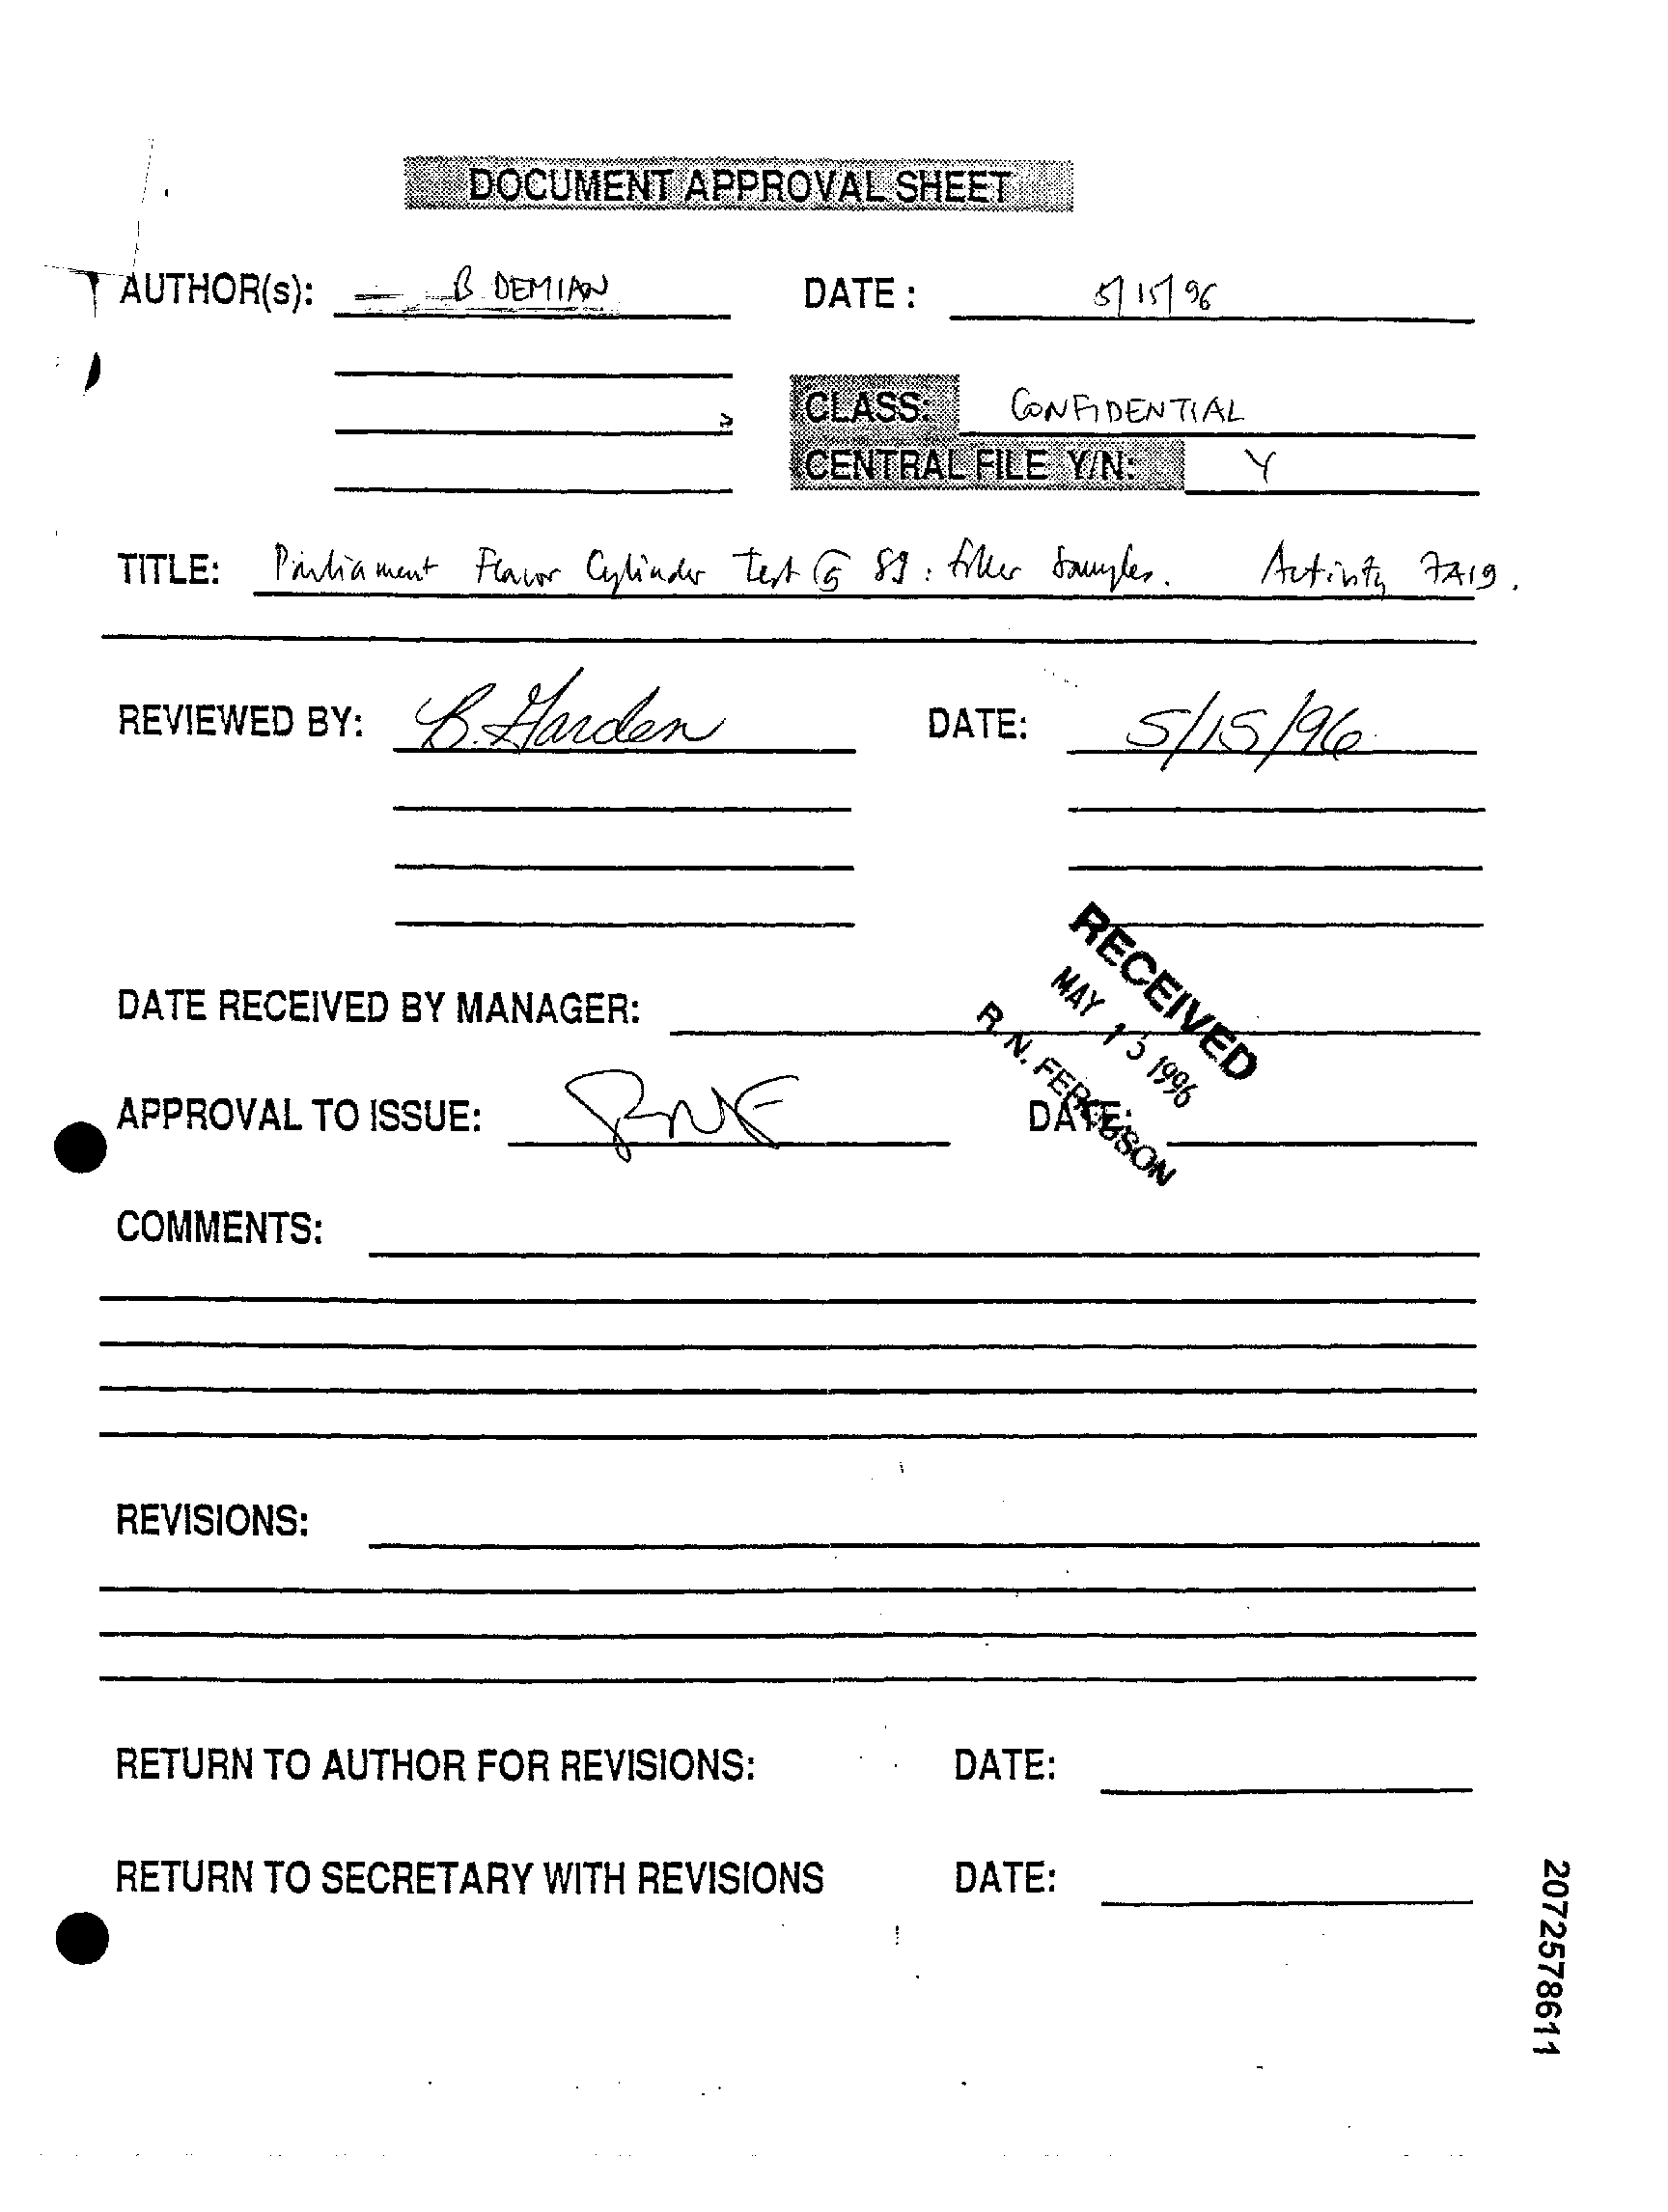 DOCUMENT APPROVAL SHEET
AUTHOR(s): B DEMIAN DATE: 5/15/96
CLASS: CONFIDENTIAL
CENTRAL FILE Y/N: Y
TITLE: Parliament Flavor Cylinder Test G 89: filler Samples. Activity 7A19.
REVIEWED BY: B. Harden DATE: 5/15/96
RECEIVED
MAY 15 1996
R. N. FERGUSON
DATE RECEIVED BY MANAGER:
APPROVAL TO ISSUE: RNF DATE:
COMMENTS:
REVISIONS:
RETURN TO AUTHOR FOR REVISIONS: DATE:
RETURN TO SECRETARY WITH REVISIONS DATE:
2072578611